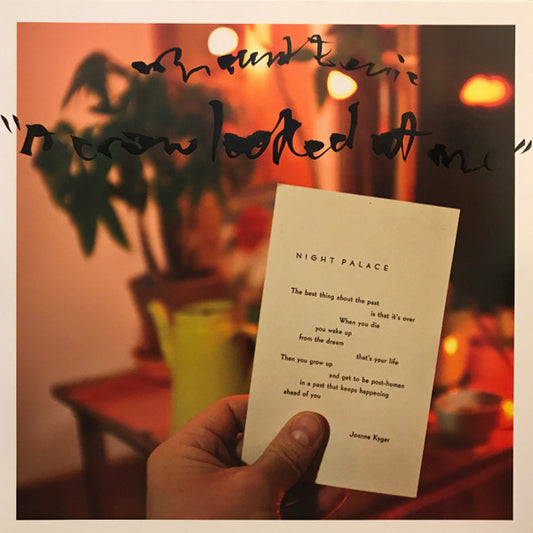 mount eerie
"a crow looked at me"
NIGHT PALACE
The best thing about the past
is that it's over
When you die
you wake up
from the dream
that's your life
Then you grow up
and get to be post-human
in a past that keeps happening
ahead of you
Joanne Kyger